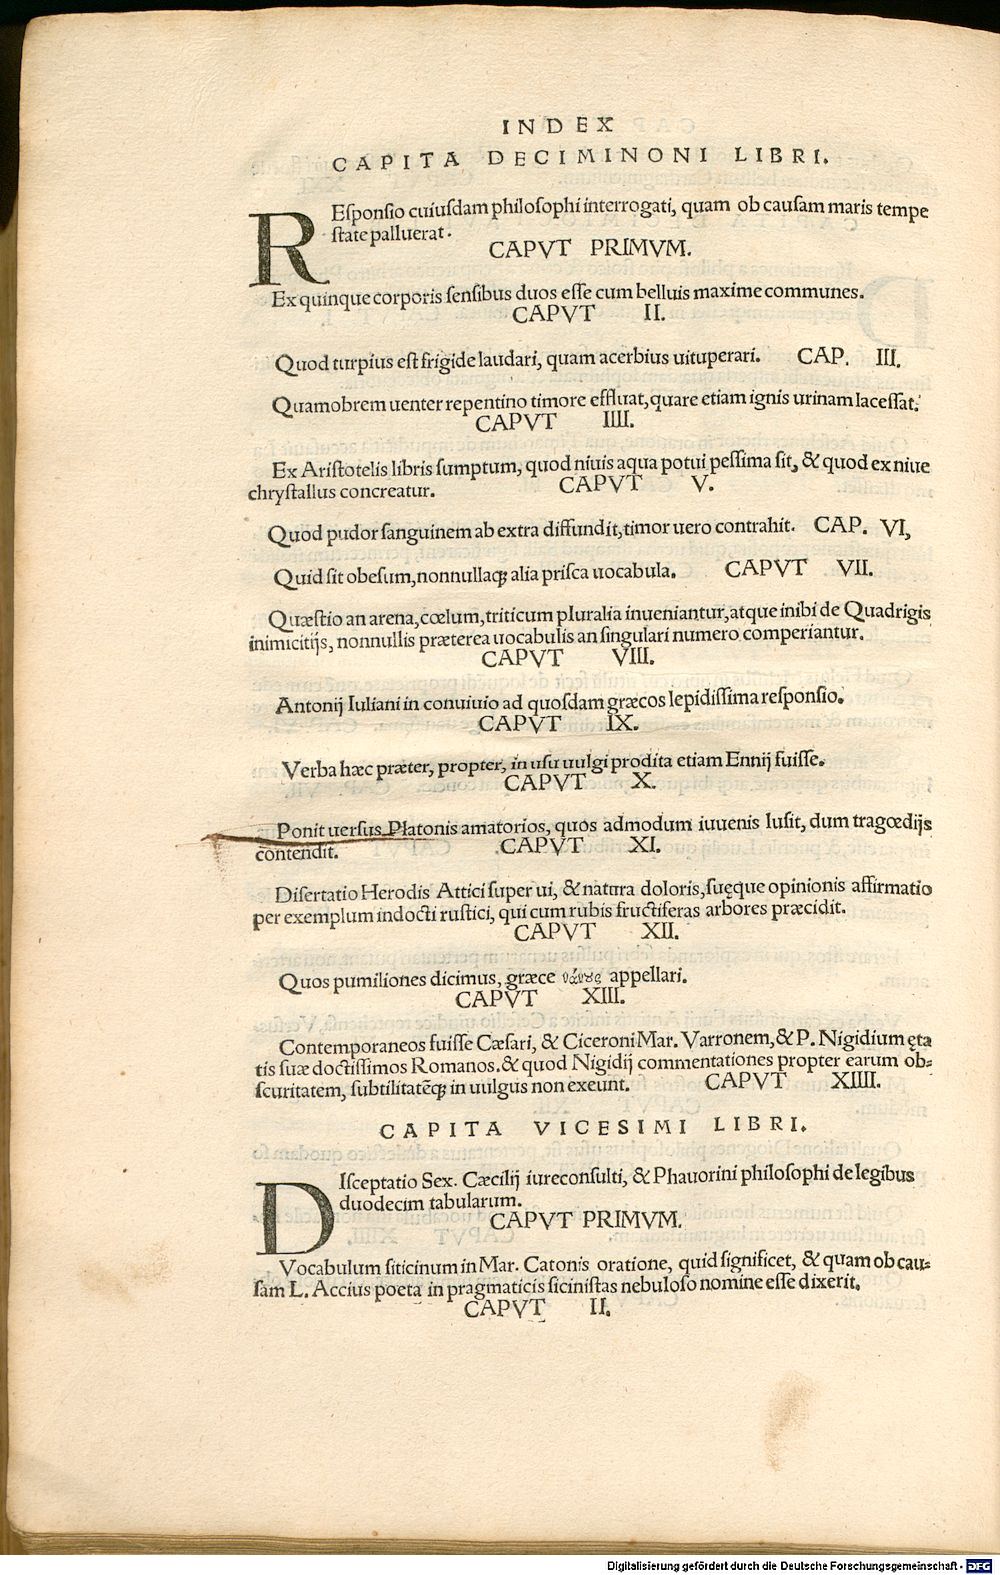 INDEX
CAPITA DECIMINONI LIBRI.
REſponſio cuiuſdam philoſophi interrogati, quam ob cauſam maris tempe
ſtate palluerat.
CAPVT PRIMVM.
Ex quinque corporis ſenſibus duos eſſe cum belluis maxime communes.
CAPVT II.
Quod turpius eſt frigide laudari, quam acerbius uituperari. CAP. III.
Quamobrem uenter repentino timore effluat, quare etiam ignis urinam laceſſat.
CAPVT IIII.
Ex Ariſtotelis libris ſumptum, quod niuis aqua potui peſſima ſit, & quod ex niue
chryſtallus concreatur. CAPVT V.
Quod pudor ſanguinem ab extra diffundit, timor uero contrahit. CAP. VI,
Quid ſit obeſum, nonnullaqꝫ alia priſca uocabula. CAPVT VII.
Quæſtio an arena, cœlum, triticum pluralia inueniantur, atque inibi de Quadrigis
inimicitijs, nonnullis præterea uocabulis an ſingulari numero comperiantur.
CAPVT VIII.
Antonij Iuliani in conuiuio ad quoſdam græcos lepidiſſima reſponſio.
CAPVT IX.
Verba hæc præter, propter, in uſu uulgi prodita etiam Ennij fuiſſe.
CAPVT X.
Ponit uerſus Platonis amatorios, quos admodum iuuenis luſit, dum tragœdijs
contendit. CAPVT XI.
Diſertatio Herodis Attici ſuper ui, & natura doloris, ſuęque opinionis affirmatio
per exemplum indocti ruſtici, qui cum rubis fructiferas arbores præcidit.
CAPVT XII.
Quos pumiliones dicimus, græce νάνους appellari.
CAPVT XIII.
Contemporaneos fuiſſe Cæſari, & Ciceroni Mar. Varronem, & P. Nigidium ęta
tis ſuæ doctiſſimos Romanos. & quod Nigidij commentationes propter earum ob=
ſcuritatem, ſubtilitatẽqꝫ in uulgus non exeunt. CAPVT XIIII.
CAPITA VICESIMI LIBRI.
DIſceptatio Sex. Cæcilij iureconſulti, & Phauorini philoſophi de legibus
duodecim tabularum.
CAPVT PRIMVM.
Vocabulum ſiticinum in Mar. Catonis oratione, quid ſignificet, & quam ob cau=
ſam L. Accius poeta in pragmaticis ſiciniſtas nebuloſo nomine eſſe dixerit.
CAPVT II.
Digitalisierung gefördert durch die Deutsche Forschungsgemeinschaft - DFG